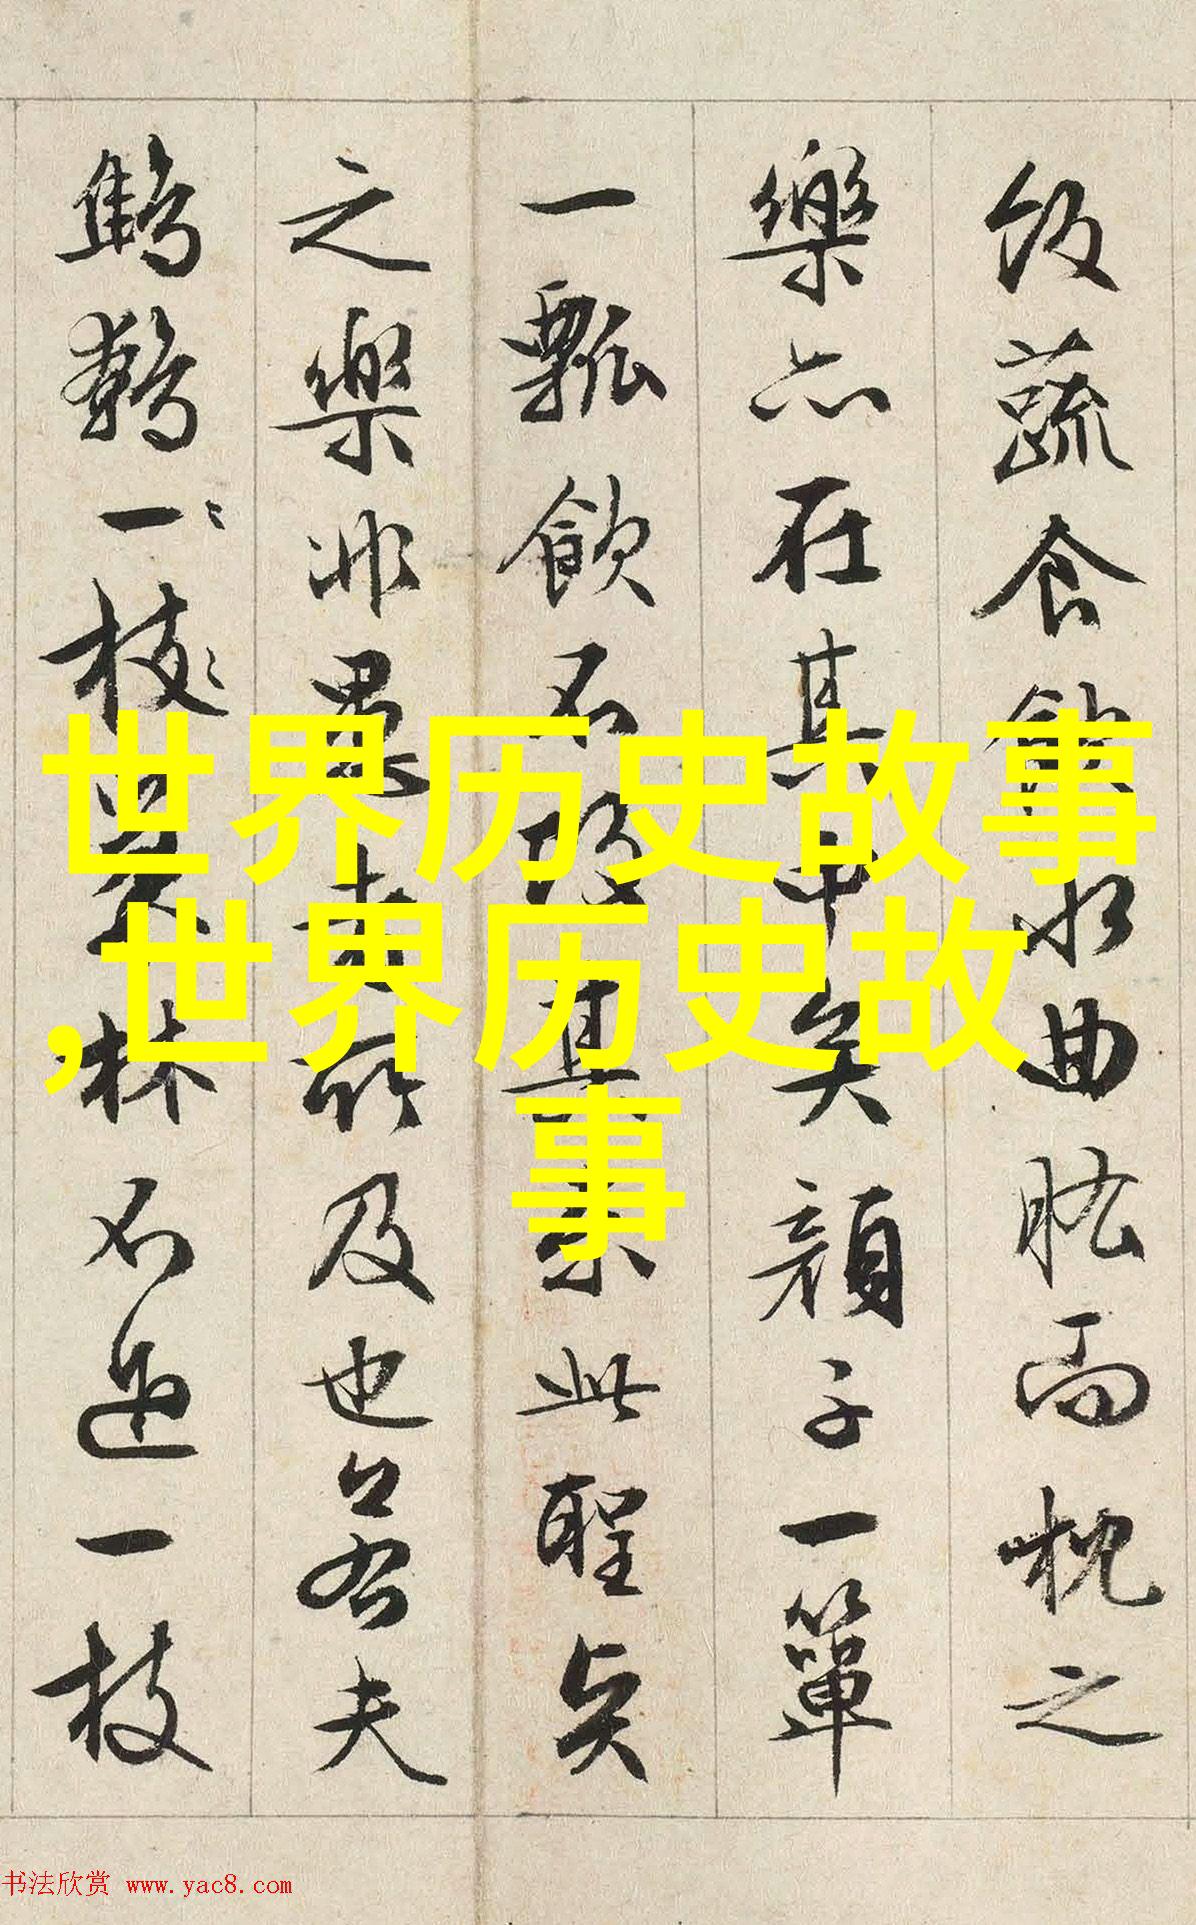 飯蔬食飲水曲肱而枕之
樂亦在其中矣顏子一簞
一瓢飲不改其樂此聖賢
之樂非愚者所及也若夫
鷦鷯一枝巢林不過一枝
世界历史故事
,世界历史故
事
书法欣赏 www.yac8.com